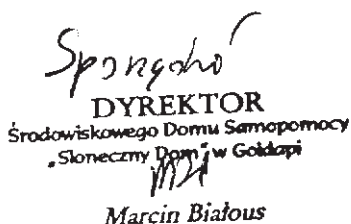 DYREKTOR
Środowiskowego Domu Samopomocy
„Słoneczny Dom" w Gołdapi
Marcin Białous